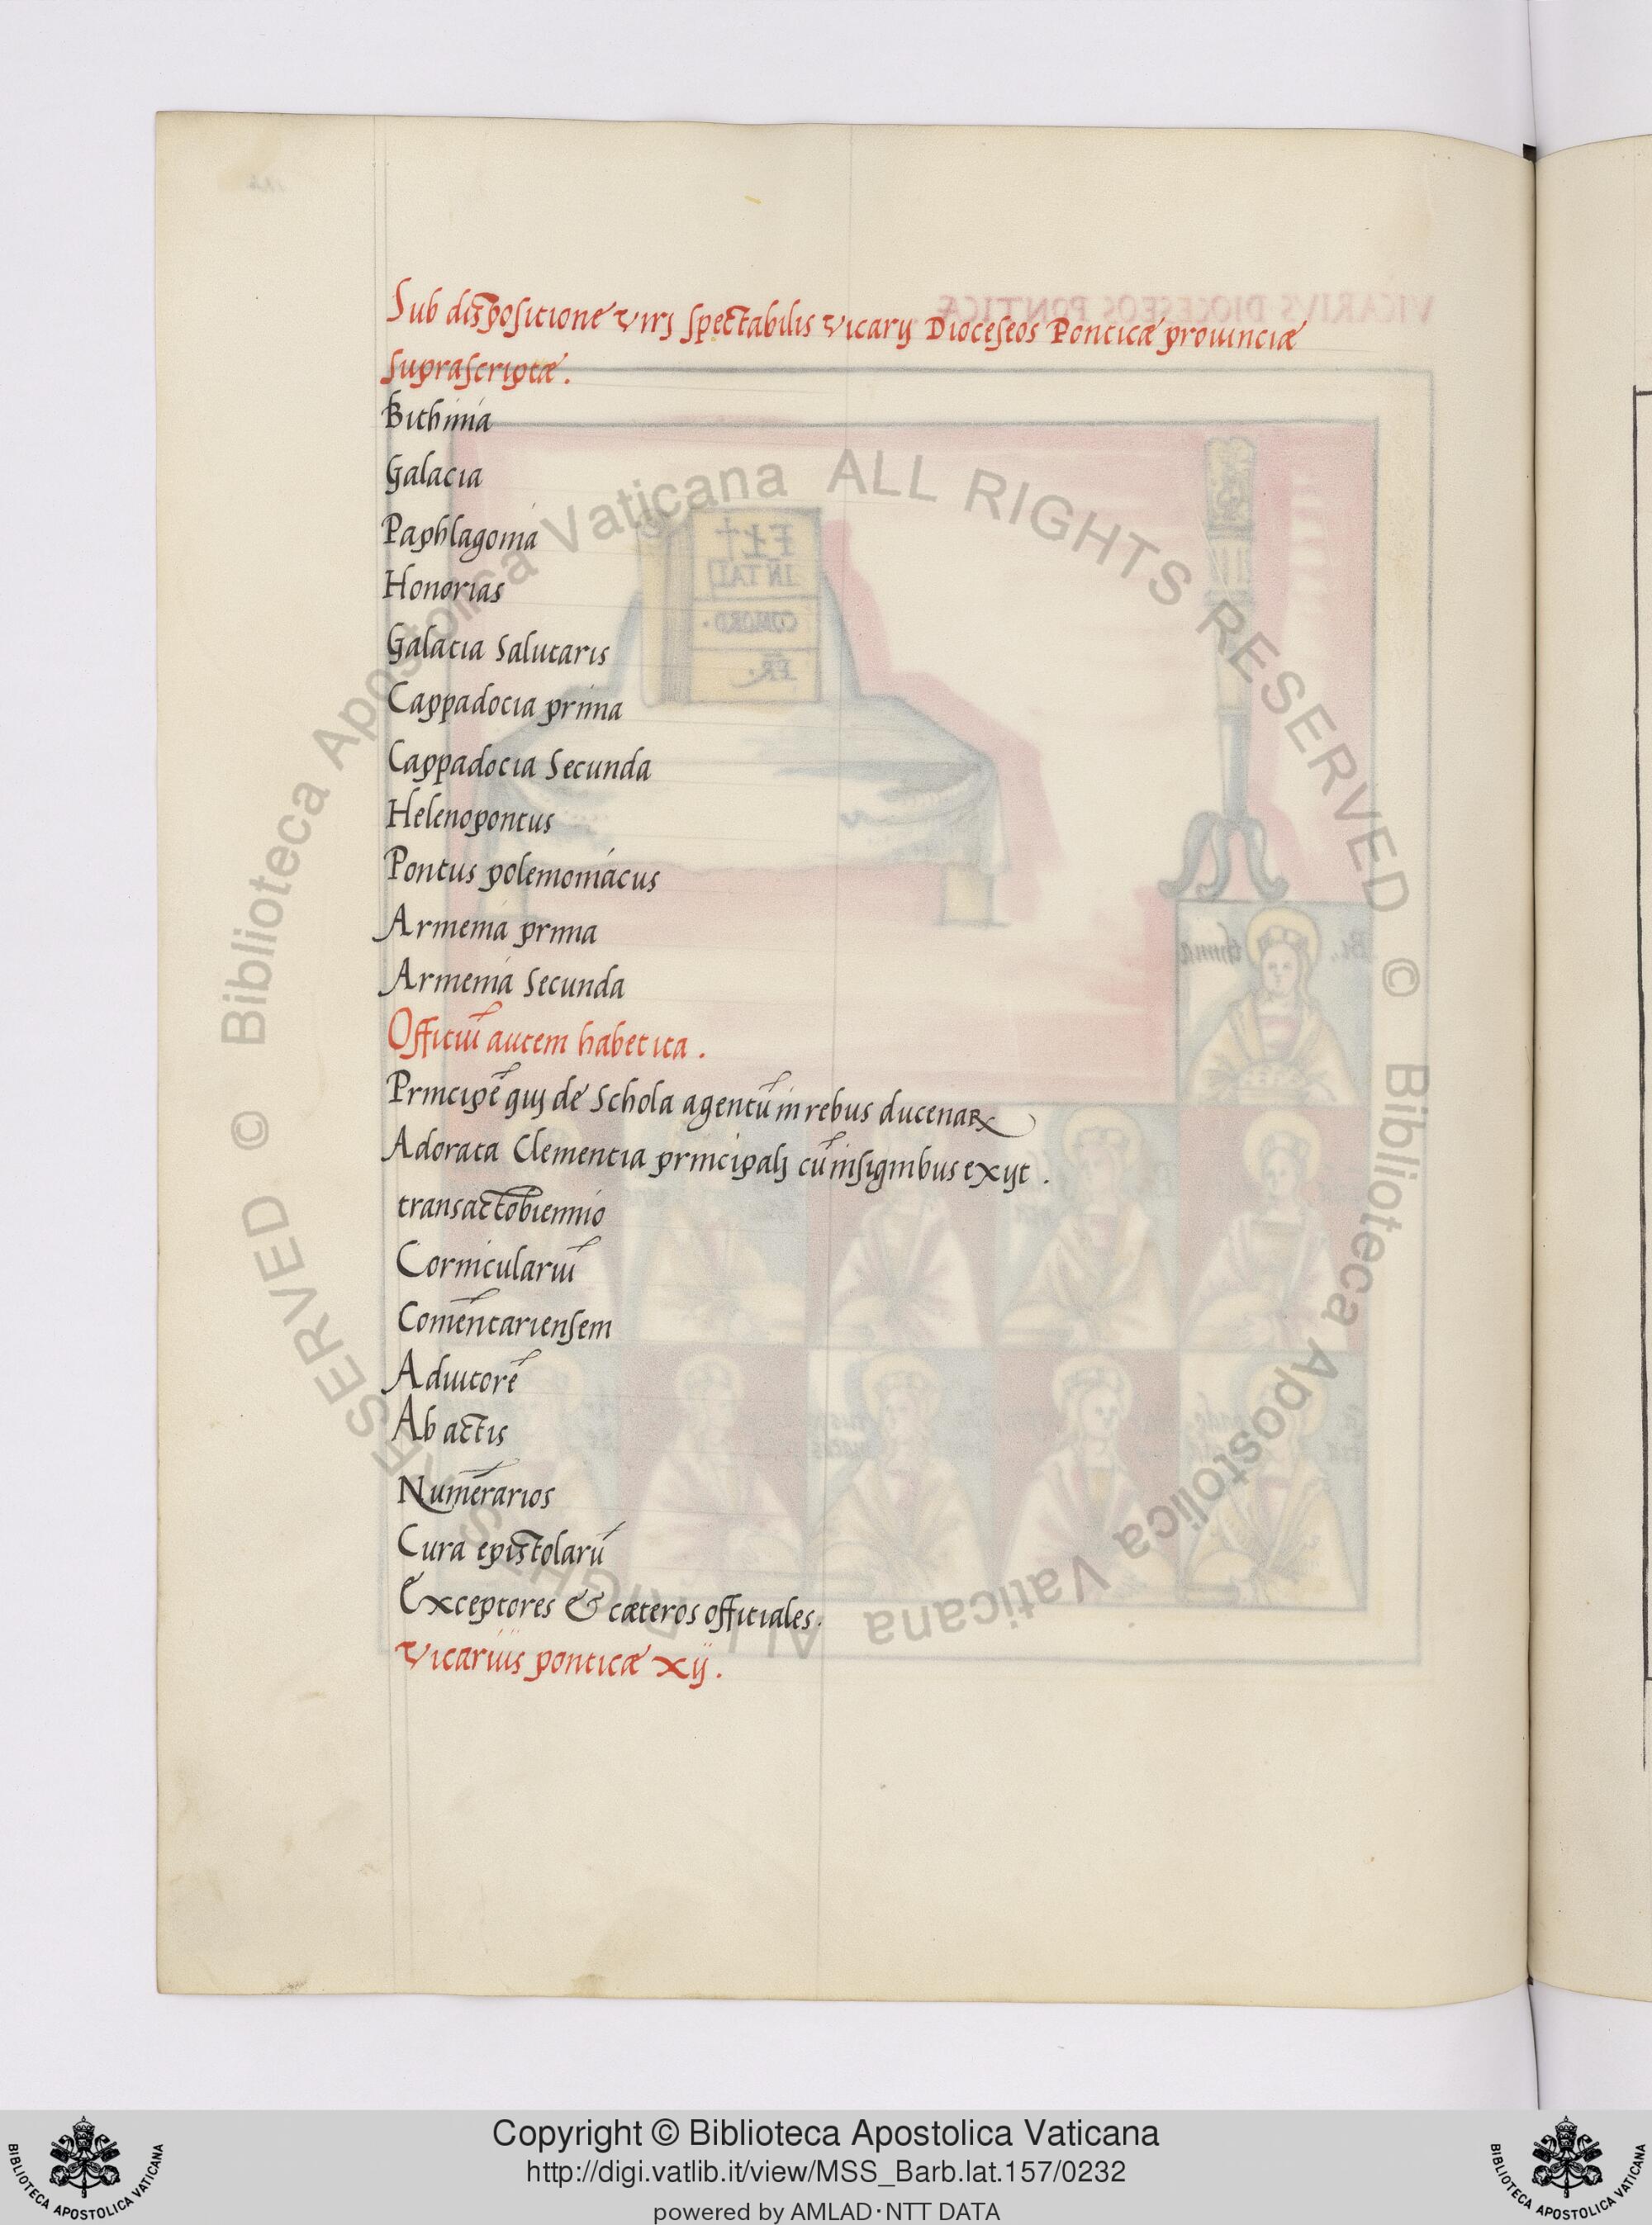 Sub dispositione virj spectabilis vicarij Dioceseos Ponticæ prouinciæ
suprascriptæ.
Bithinia
Galacia
Paphlagonia
Honorias
Galatia Salutaris
Cappadocia prima
Cappadocia Secunda
Helenopontus
Pontus polemoniacus
Armenia prima
Armenia Secunda
Officiũ autem habet ita.
Principẽ quj de Schola agentũ in rebus ducenaꝝ
Adorata Clementia principalj cũ insignibus exijt.
transacto biennio
Corniculariũ
Comẽntariensem
Adiutorẽ
Ab actis
Numẽrarios
Cura epistolarũ
Exceptores & cæteros officiales.
Vicarius ponticæ xij.
VICARIVS DIOCESEOS PONTICÆ
IN TALI
COMORD·
PR·
Bi thinia
© Biblioteca Apostolica Vaticana ALL RIGHTS RESERVED © Biblioteca Apostolica Vaticana ALL RIGHTS RESERVED
Copyright © Biblioteca Apostolica Vaticana
http://digi.vatlib.it/view/MSS_Barb.lat.157/0232
powered by AMLAD·NTT DATA
BIBLIOTECA APOSTOLICA VATICANA
BIBLIOTECA APOSTOLICA VATICANA